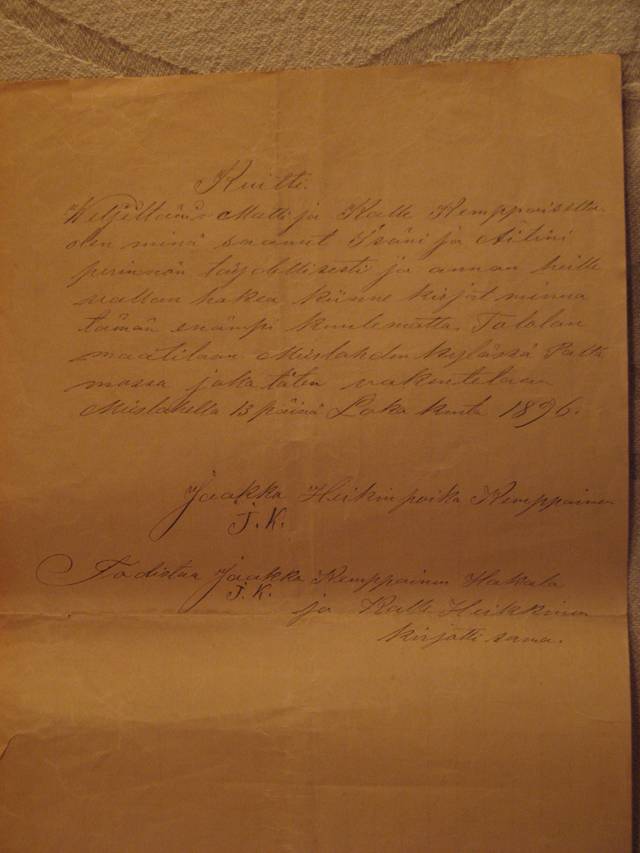 Kuitti.
Weljiltäni Matti ja Kalle Kemppaiselta
olen minä saanut Isäni ja Äitini
perinnön täydellisesti ja annan heille
vallan hakea kiinne kirjat minua
tämän enämpi kuulematta, Talolan
maatilaan Mieslahden kylässä Palta
mossa joka täten vakuutetaan
Mieslahella 13 päivä Loka kuuta 1896.
Jaakko Heikin poika Kemppainen
J. K.
Todistaa Jaakko Kemppainen Hakala
J. K.
ja Kalle Heikkinen
kirjotti saman.